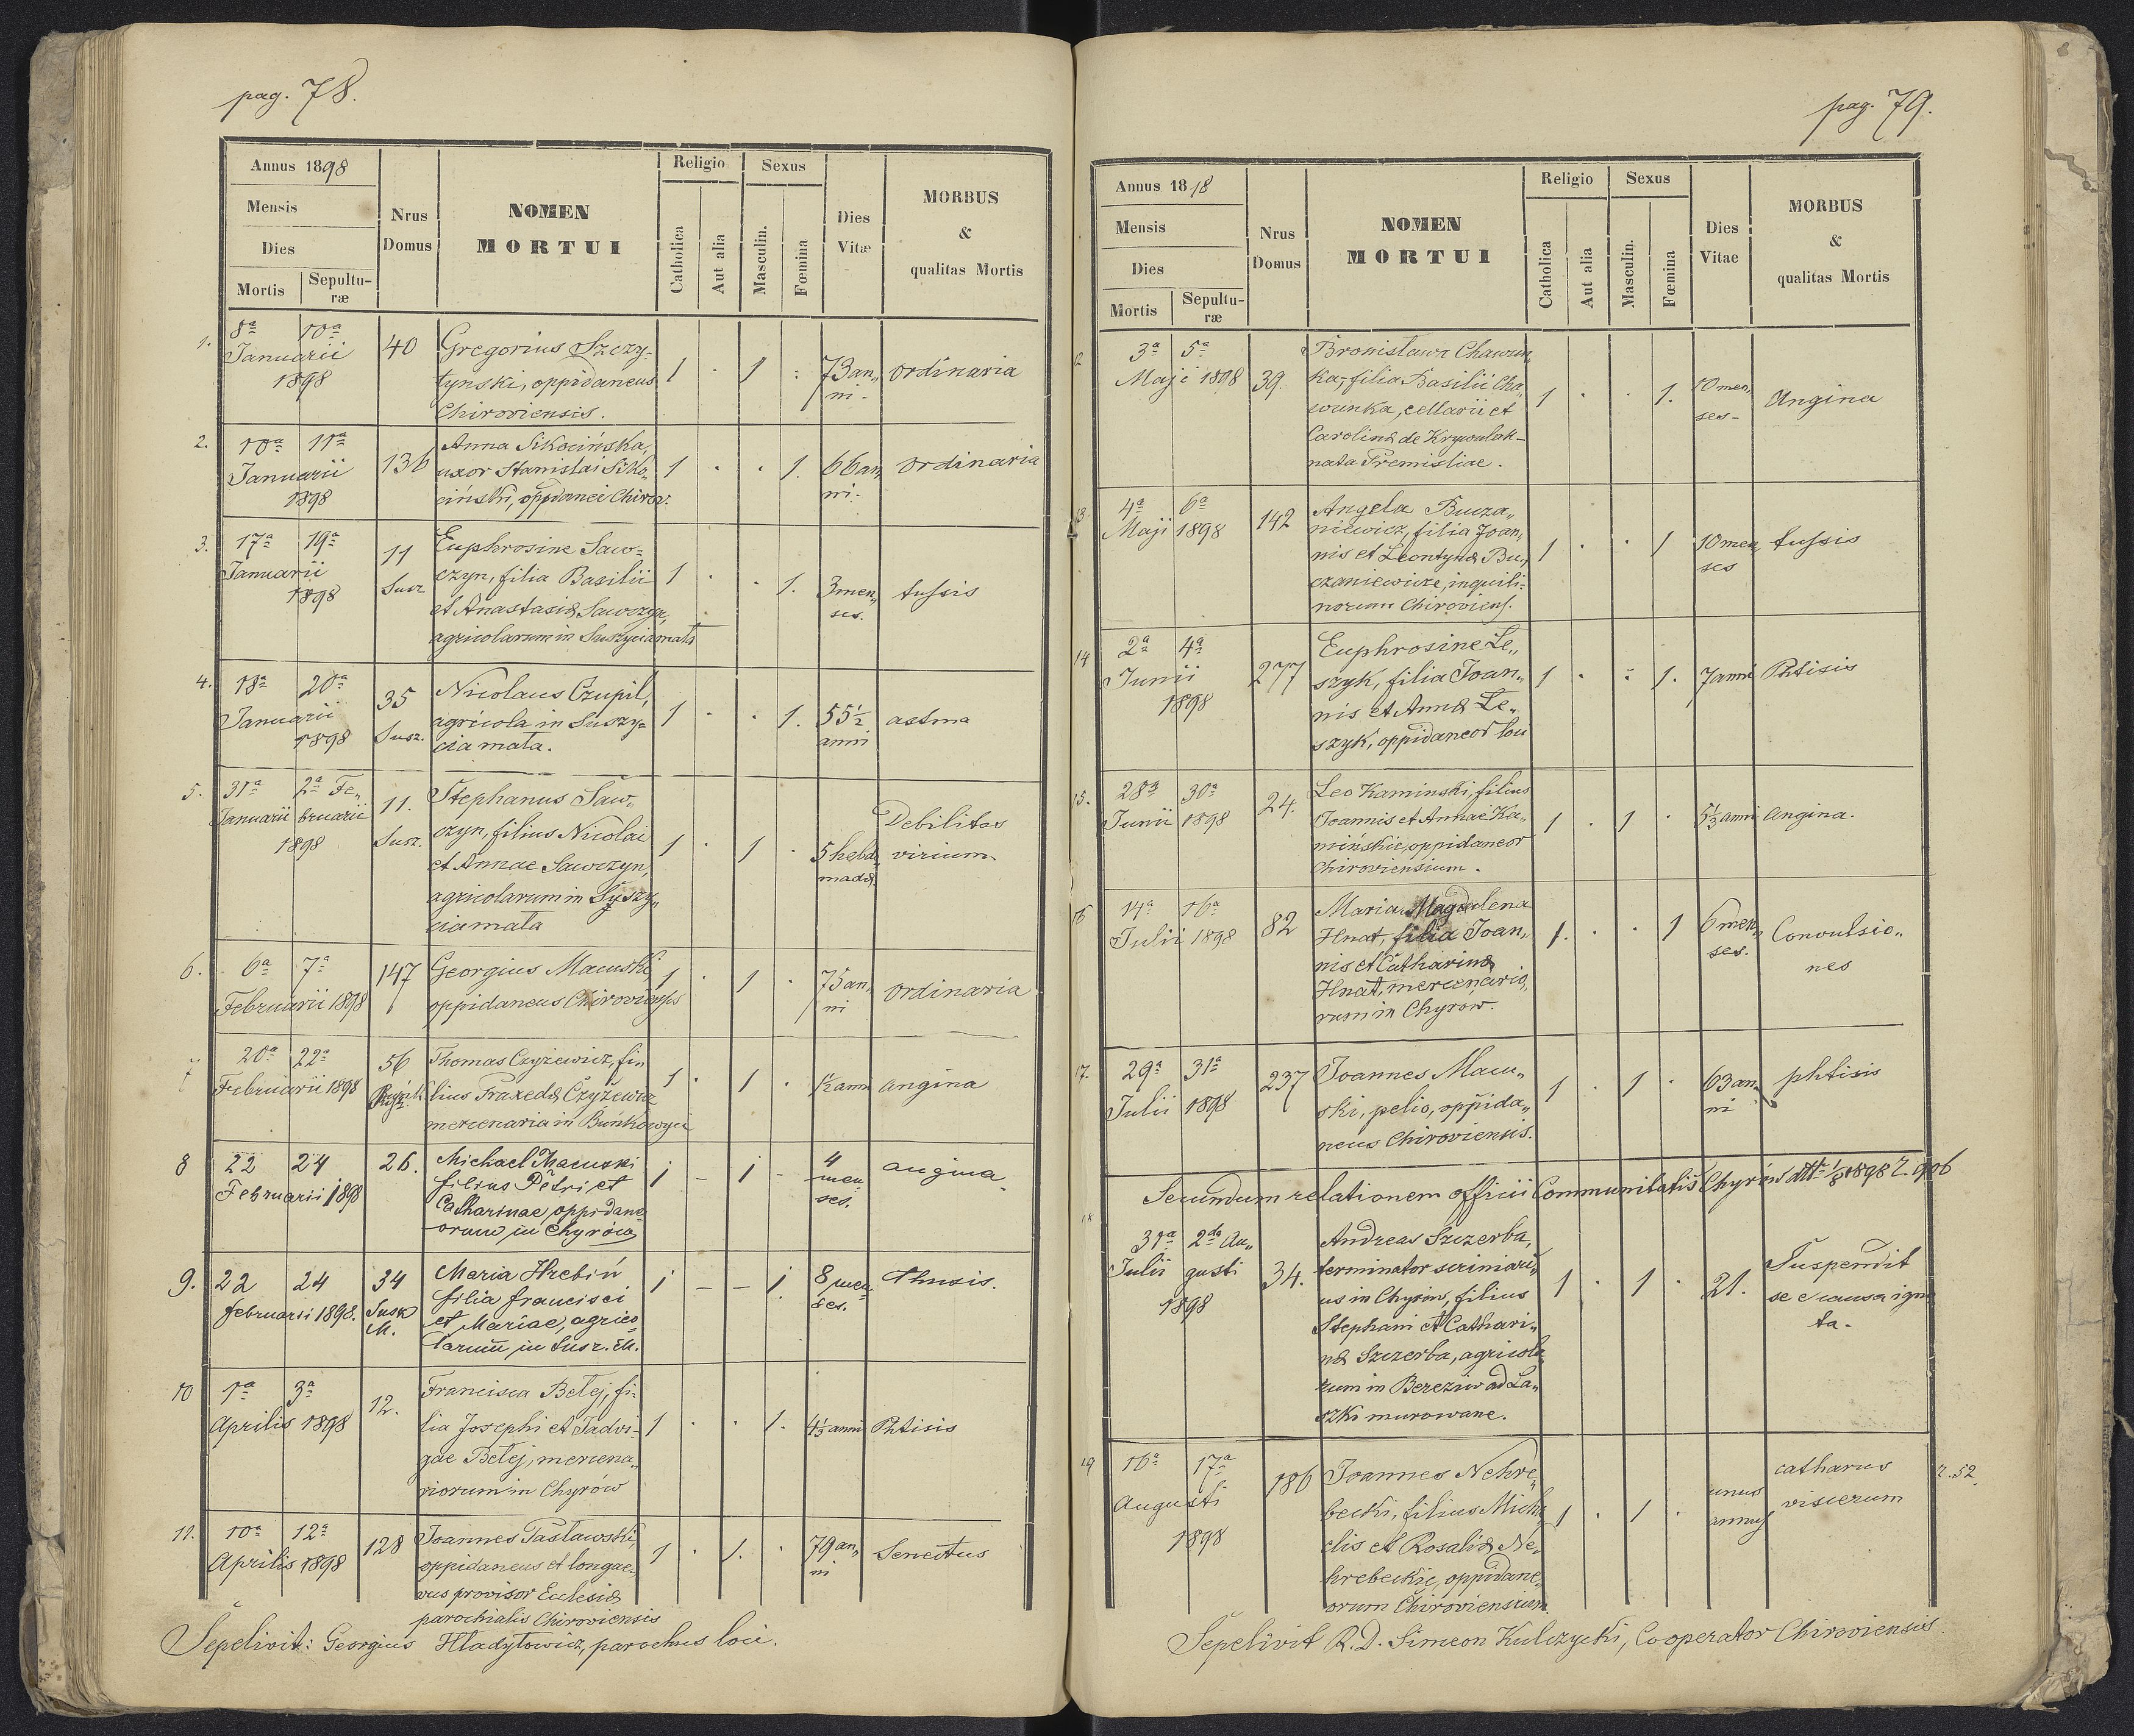 pag. 78.
Annus 1898
Mensis
Dies
Mortis
Sepultu-
ræ
Nrus
Domus
NOMEN
MORTUI
Religio
Catholica
Aut alia
Sexus
Masculin.
Fœmina
Dies
Vitæ
MORBUS
&
qualitas Mortis
1. 8ª 10ª
Januarii
1898
40
Gregorius Szczy-
tynski, oppidaneus
Chiroviensis.
1 . 1 :
73 an„
ni.
ordinaria
2. 10ª 11ª
Januarii
1898
136
Anna Sikocińska,
uxor Stanislai Siko„
ciński, oppidanei Chirov.
1 . . 1.
66 an„
ni.
ordinaria
3. 17ª 19ª
Januarii
1898
11
Susz.
Euphrosine Saw-
czyn, filia Basilii
et Anastasiæ Sawczyn,
agricolarum in Suszycia mała
1 . . 1.
3 men„
ses.
tussis
4. 18ª 20ª
Januarii
1898
35
Susz.
Nicolaus Czupil,
agricola in Suszy-
cia mała.
1 . . 1.
55½
anni
astma
5. 31ª 2ª Fe„
Januarii bruarii
1898
11.
Susz.
Stephanus Saw„
czyn, filius Nicolai
et Annae Sawczyn,
agricolarum in Suszy„
cia mała
1 . 1 .
5 hebdo
madæ
Debilitas
virium
6. 6ª 7ª
Februarii 1898
147
Georgius Macuski,
oppidaneus Chiroviensis
1 . 1 .
75 an„
ni
ordinaria
7 20ª 22ª
Februarii 1898
56
Thomas Czyżewicz, fi„
lius Praxedæ Czyżewicz
mercenaria in Buńkowyci
1 . 1 .
½ anni
angina
8 22 24
Februarii 1898
26.
Michael Macuski
filius Petri et
Catharinae, oppidane
orum in Chyrów
1 – 1 –
4
men
ses.
angina.
9. 22 24
Februarii 1898.
34
Susz
M.
Maria Hrebiń
filia Francisci
et Mariae, agrico
larum in Susz. M.
1 – – 1.
8 men
ses.
Thusis.
10 1ª 3ª
Aprilis 1898
12.
Francisca Betej, fi-
lia Josephi et Jadvi-
gae Betej, mercena„
riorum in Chyrów
1 . . 1.
4⅓ anni
Phtisis
11. 10ª 12ª
Aprilis 1898
128
Joannes Pasławski,
oppidaneus et longae„
vus provisor Ecclesiæ
parochialis Chiroviensis
1 . 1. .
79 an„
ni
Senectus
Sepelivit: Georgius Hładyłowicz, parochus loci.
pag. 79.
Annus 1818
Mensis
Dies
Mortis
Sepultu-
ræ
Nrus
Domus
NOMEN
MORTUI
Religio
Catholica
Aut alia
Sexus
Masculin.
Fœmina
Dies
Vitae
MORBUS
&
qualitas Mortis
12 3ª 5ª
Maji 1898
39.
Bronisława Chawun
ka, filia Basilii Cha„
wunka, cellarii et
Carolinæ de Krywulak
nata Premisliae.
1 . . 1.
10 men„
ses
Angina
13 4ª 6ª
Maji 1898
142
Angela Bucza„
niewicz, filia Joan„
nis et Leontynæ Bu„
czaniewicze, inquili-
norum Chiroviens.
1 . . 1
10 men
ses
tussis
14 2ª 4ª
Junii
1898
277
Euphrosine Le„
szyk, filia Joan„
nis et Annæ Le„
szyk, oppidaneor loci
1 . : 1.
7 anni
Phtisis
15. 28ª 30ª
Junii 1898
24.
Leo Kaminski, filius
Joannis et Annae Ka„
mińskie, oppidaneor
Chiroviensium.
1 . 1 .
5⅓ anni
angina.
16 14ª 16ª
Julii 1898
82
Maria Magdalena
Hnat, filia Joan„
nis et Catharinæ
Hnat, mercenario„
rum in Chyrow.
1. . . 1
6 men„
ses.
Convulsio„
nes
17. 29ª 31ª
Julii 1898
237
Joannes Macu„
ski, pelio, oppida„
neus Chiroviensis.
1 . 1 .
63 an„
ni
phtisis
Secundum relationem officii Communitatis Chyrów dtt 1/8 1898 Z. 906
18 31ª 2da Au„
Julii gusti
1898
34.
Andreas Szczerba,
terminator scriniari„
us in Chyrów, filius
Stephani et Cathari„
næ Szczerba, agricola
rum in Berezów ad La„
szki murowane.
1 . 1 .
21.
Suspendit
se e causa igno
ta.
19 16ª 17ª
Augusti
1898
186
Joannes Nehre„
becki, filius Micha
elis et Rosaliæ Ne„
hrebeckie, oppidane„
orum Chiroviensium.
1 . 1 .
unus
annus
catharus
viscerum
Z. 52.
Sepelivit R. D. Simeon Kulczycki, Cooperator Chiroviensis.